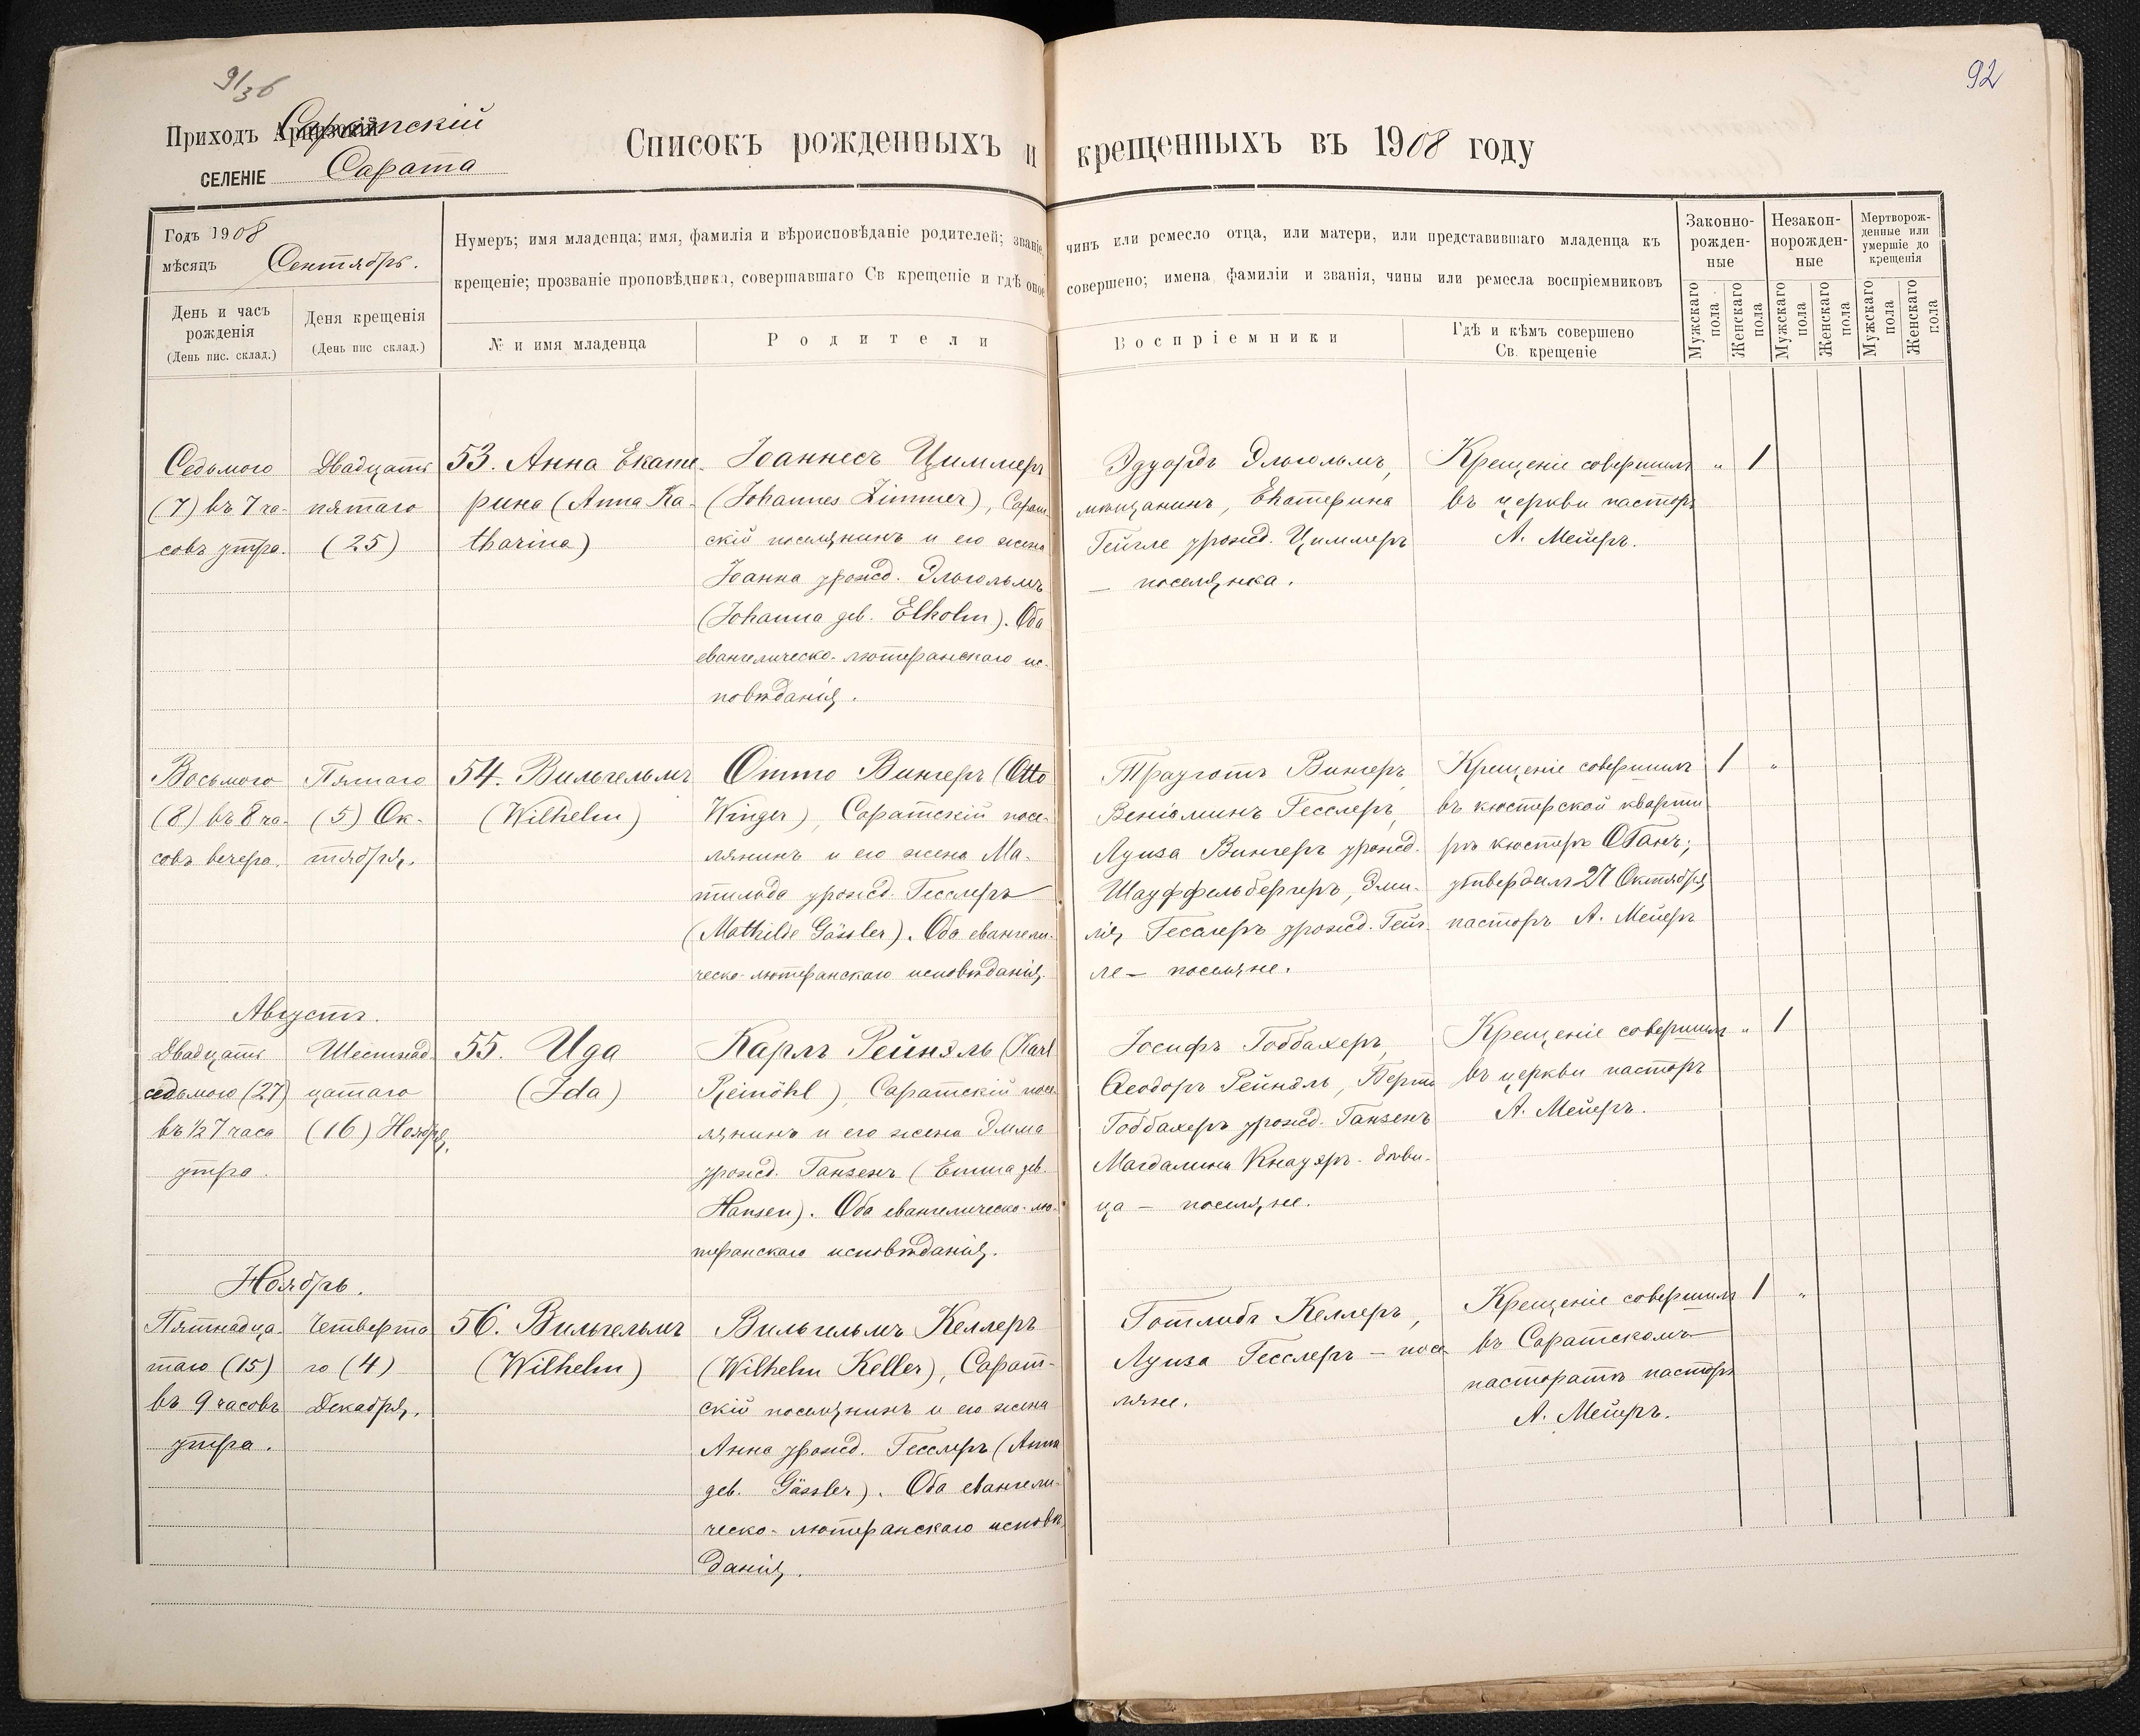 92
Приходъ Арцизскій Саратскій
СЕЛЕНІЕ Сарата
Списокъ рожденныхъ и крещенныхъ въ 1908 году
Годъ 1908
мѣсяцъ Сентябрь.
Нумеръ; имя младенца; имя, фамилія и вѣроисповѣданіе родителей; званіе, чинъ или ремесло отца, или матери, или представившаго младенца къ
крещеніе; прозваніе проповѣдника, совершавшаго Св крещеніе и гдѣ оное совершено; имена фамиліи и званія, чины или ремесла воспріемниковъ
День и часъ
рожденія
(День пис. склад.)
Деня крещенія
(День пис склад.)
№ и имя младенца
Родители
Воспріемники
Гдѣ и кѣмъ совершено
Св. крещеніе
Законно-
рожден-
ные
Незакон-
норожден-
ные
Мертворож-
денные или
умершіе до
крещенія
Мужскаго
пола
Женскаго
пола
Мужскаго
пола
Женскаго
пола
Мужскаго
пола
Женскаго
пола
Седьмого
(7) въ 7 ча-
совъ утра.
Двадцать
пятаго
(25)
53. Анна Екате-
рина (Anna Ka-
tharina)
Іоаннесъ Циммеръ
(Johannes Zimmer), Сарат-
скій поселянинъ и его жена
Іоанна урожд. Элькольмъ
(Johanna дев. Elkolm). Оба
евангелическо-лютеранскаго ис-
повѣданія.
Эдуардъ Элькольмъ,
мѣщанинъ, Екатерина
Гейгле урожд. Циммеръ
— поселянка.
Крещеніе совершилъ
въ церкви пасторъ
А. Мейеръ.
" 1
Восьмого
(8) въ 8 ча-
совъ вечера.
Пятаго
(5) Ок-
тября.
54. Вильгельмъ
(Wilhelm)
Отто Вингеръ (Otto
Winger), Саратскій посе-
лянинъ и его жена Ма-
тильда урожд. Гесслеръ
(Mathilde Gässler). Оба евангели-
ческо-лютеранскаго исповѣданія.
Трауготъ Вингеръ,
Веніаминъ Гесслеръ,
Луиза Вингеръ урожд.
Шауффельбергеръ, Эми-
лія Гесслеръ урожд. Гейг-
ле — поселяне.
Крещеніе совершилъ
въ кюстерской кварти-
рѣ кюстеръ
утвердилъ 27 Октября
пасторъ А. Мейеръ
1 "
Августъ.
Двадцать
седьмого (27)
въ ½ 7 часа
утра.
Шестнад-
цатаго
(16) Ноября.
55. Ида
(Ida)
Карлъ Рейнэль (Karl
Reinöhl), Саратскій посе-
лянинъ и его жена Эмма
урожд. Ганзенъ (Emma дев.
Hansen). Оба евангелическо-лю-
теранскаго исповѣданія.
Іосифъ Гоббахеръ,
Ѳеодоръ Рейнэль, Берта
Гоббахеръ урожд. Ганзенъ
Магдалина Кнауэръ-дѣви-
ца — поселяне.
Крещеніе совершилъ
въ церкви пасторъ
А. Мейеръ.
" 1
Ноябрь.
Пятнадца-
таго (15)
въ 9 часовъ
утра.
Четверта-
го (4)
Декабря.
56. Вильгельмъ
(Wilhelm)
Вильгельмъ Келлеръ
(Wilhelm Keller), Сарат-
скій поселянинъ и его жена
Анна урожд. Гесслеръ (Anna
дев. Gässler). Оба евангели-
ческо-лютеранскаго исповѣ-
данія.
Готлибъ Келлеръ,
Луиза Гесслеръ — посе-
ляне.
Крещеніе совершилъ
въ Саратскомъ
пасторатѣ пасторъ
А. Мейеръ.
1 "